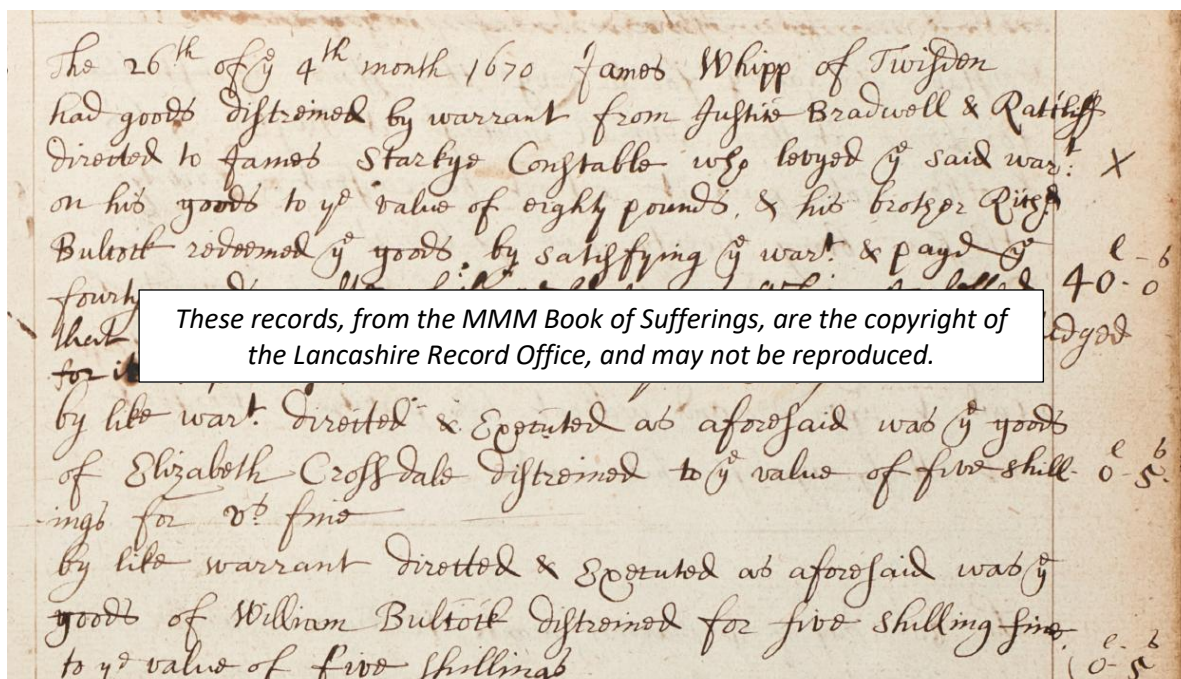 The 26th of ye 4th month 1670 James Whipp of Twisden
had goods distreined by warrant from Justice Bradwell & Ratcliff
directed to James Starkye Constable who levyed ye said wart: X
on his goods to ye value of eighty pounds, & his brother Richd
Bulcock redeemed ye goods, by satisfying ye wart. & payd ye
l - s
fourty 40 - 0
These records, from the MMM Book of Sufferings, are the copyright of
the Lancashire Record Office, and may not be reproduced.
that
for
by like wart. directed & Executed as aforesaid was ye goods
l s
of Elizabeth Crossdale distreined to ye value of five shill- 0 - 5
ings for vs. fine
by like warrant directed & Executed as aforesaid was ye
goods of William Bulcock distreined for five shilling fine
l s
to ye value of five shillings 0 - 5